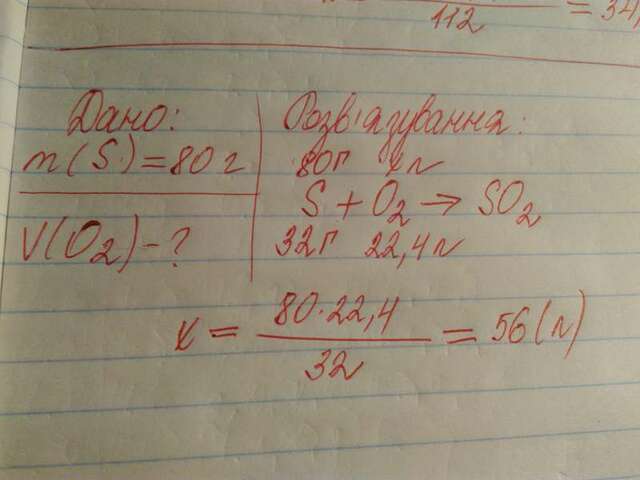 112 = 34
Дано:
m(S) = 80 г
V(O2) - ?
Розв'язування:
80г xл
S + O2 → SO2
32г 22,4л
x = 80·22,4 / 32 = 56(л)